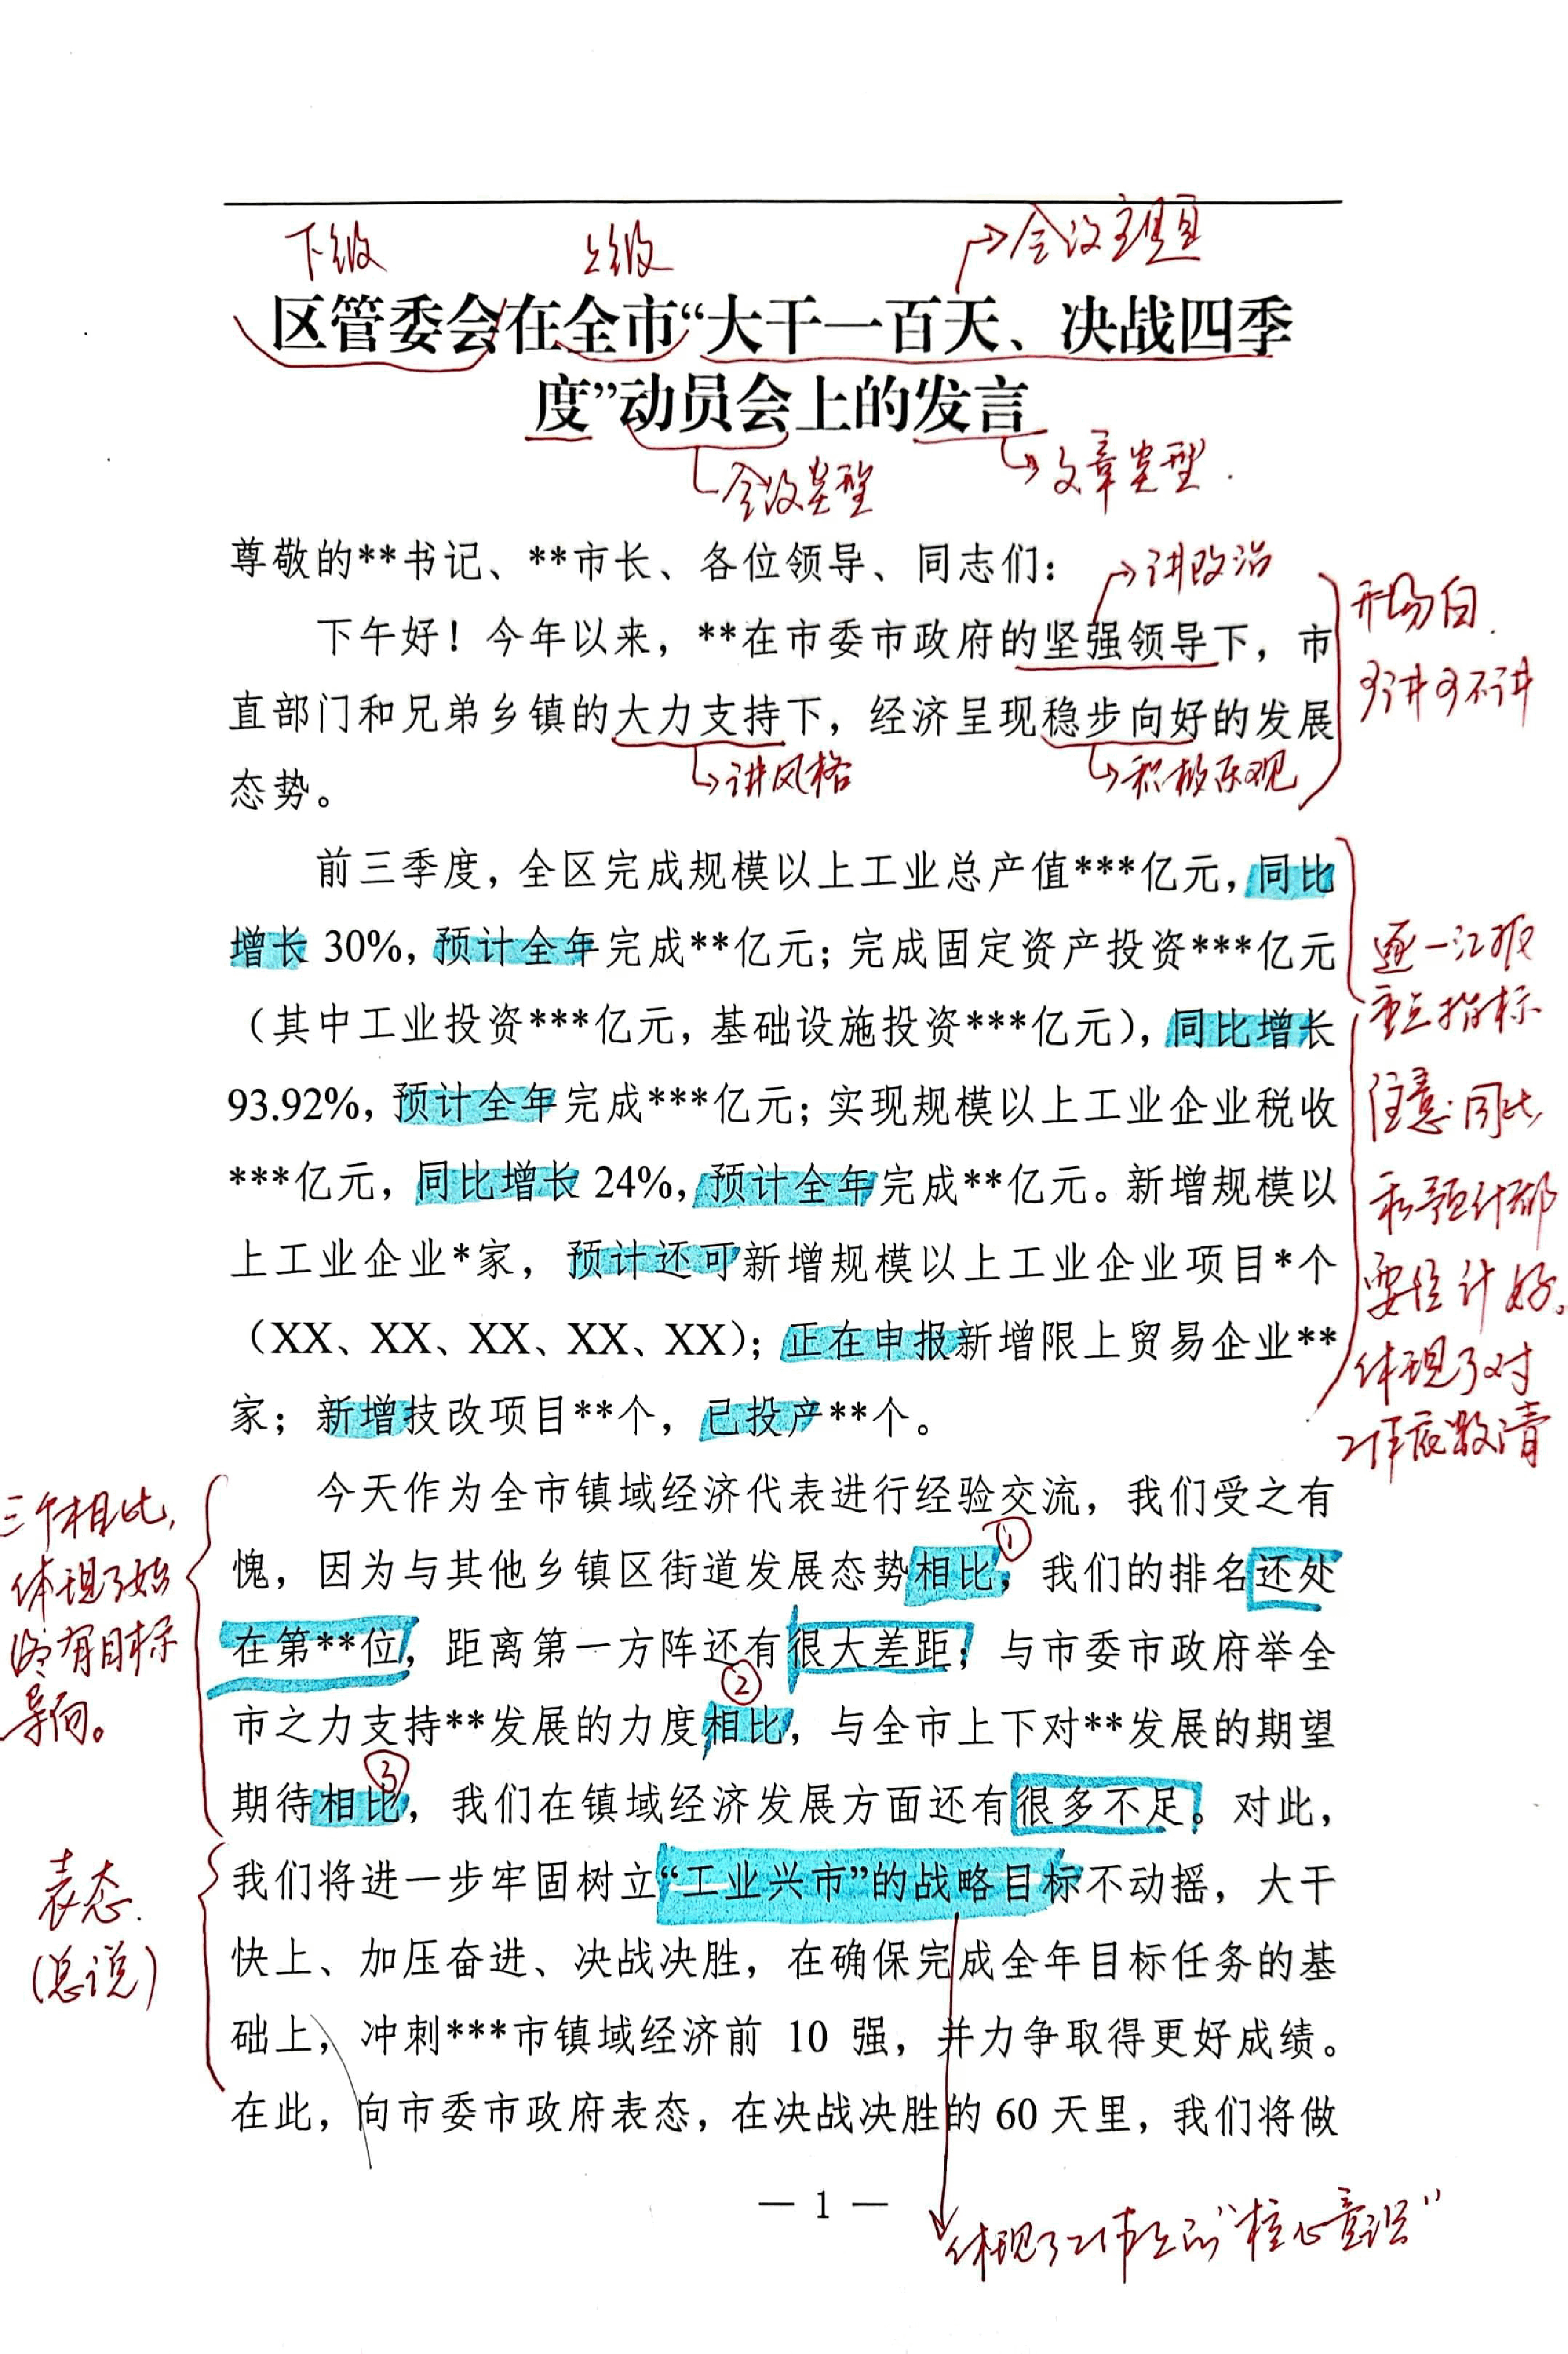 下级
上级
会议主题
区管委会在全市“大干一百天、决战四季
度”动员会上的发言
会议类型
文章类型.
尊敬的**书记、**市长、各位领导、同志们：
讲政治
下午好！今年以来，**在市委市政府的坚强领导下，市
直部门和兄弟乡镇的大力支持下，经济呈现稳步向好的发展
态势。
讲风格
积极乐观
开场白.
可讲可不讲
前三季度，全区完成规模以上工业总产值***亿元，同比
增长 30%，预计全年完成**亿元；完成固定资产投资***亿元
（其中工业投资***亿元，基础设施投资***亿元），同比增长
93.92%，预计全年完成***亿元；实现规模以上工业企业税收
***亿元，同比增长 24%，预计全年完成**亿元。新增规模以
上工业企业*家，预计还可新增规模以上工业企业项目*个
（XX、XX、XX、XX、XX）；正在申报新增限上贸易企业**
家；新增技改项目**个，已投产**个。
逐一汇报
重点指标
注意:同比
和预计都
要统计好。
体现了对
工作底数清
今天作为全市镇域经济代表进行经验交流，我们受之有
愧，因为与其他乡镇区街道发展态势相比①，我们的排名还处
在第**位，距离第一方阵还有很大差距；与市委市政府举全
市之力支持**发展的力度相比②，与全市上下对**发展的期望
期待相比③，我们在镇域经济发展方面还有很多不足。对此，
我们将进一步牢固树立“工业兴市”的战略目标不动摇，大干
快上、加压奋进、决战决胜，在确保完成全年目标任务的基
础上，冲刺***市镇域经济前 10 强，并力争取得更好成绩。
在此，向市委市政府表态，在决战决胜的 60 天里，我们将做
三个相比,
体现了始
终有目标
导向。
表态.
(总说)
— 1 —
体现了工作上的“核心意识”